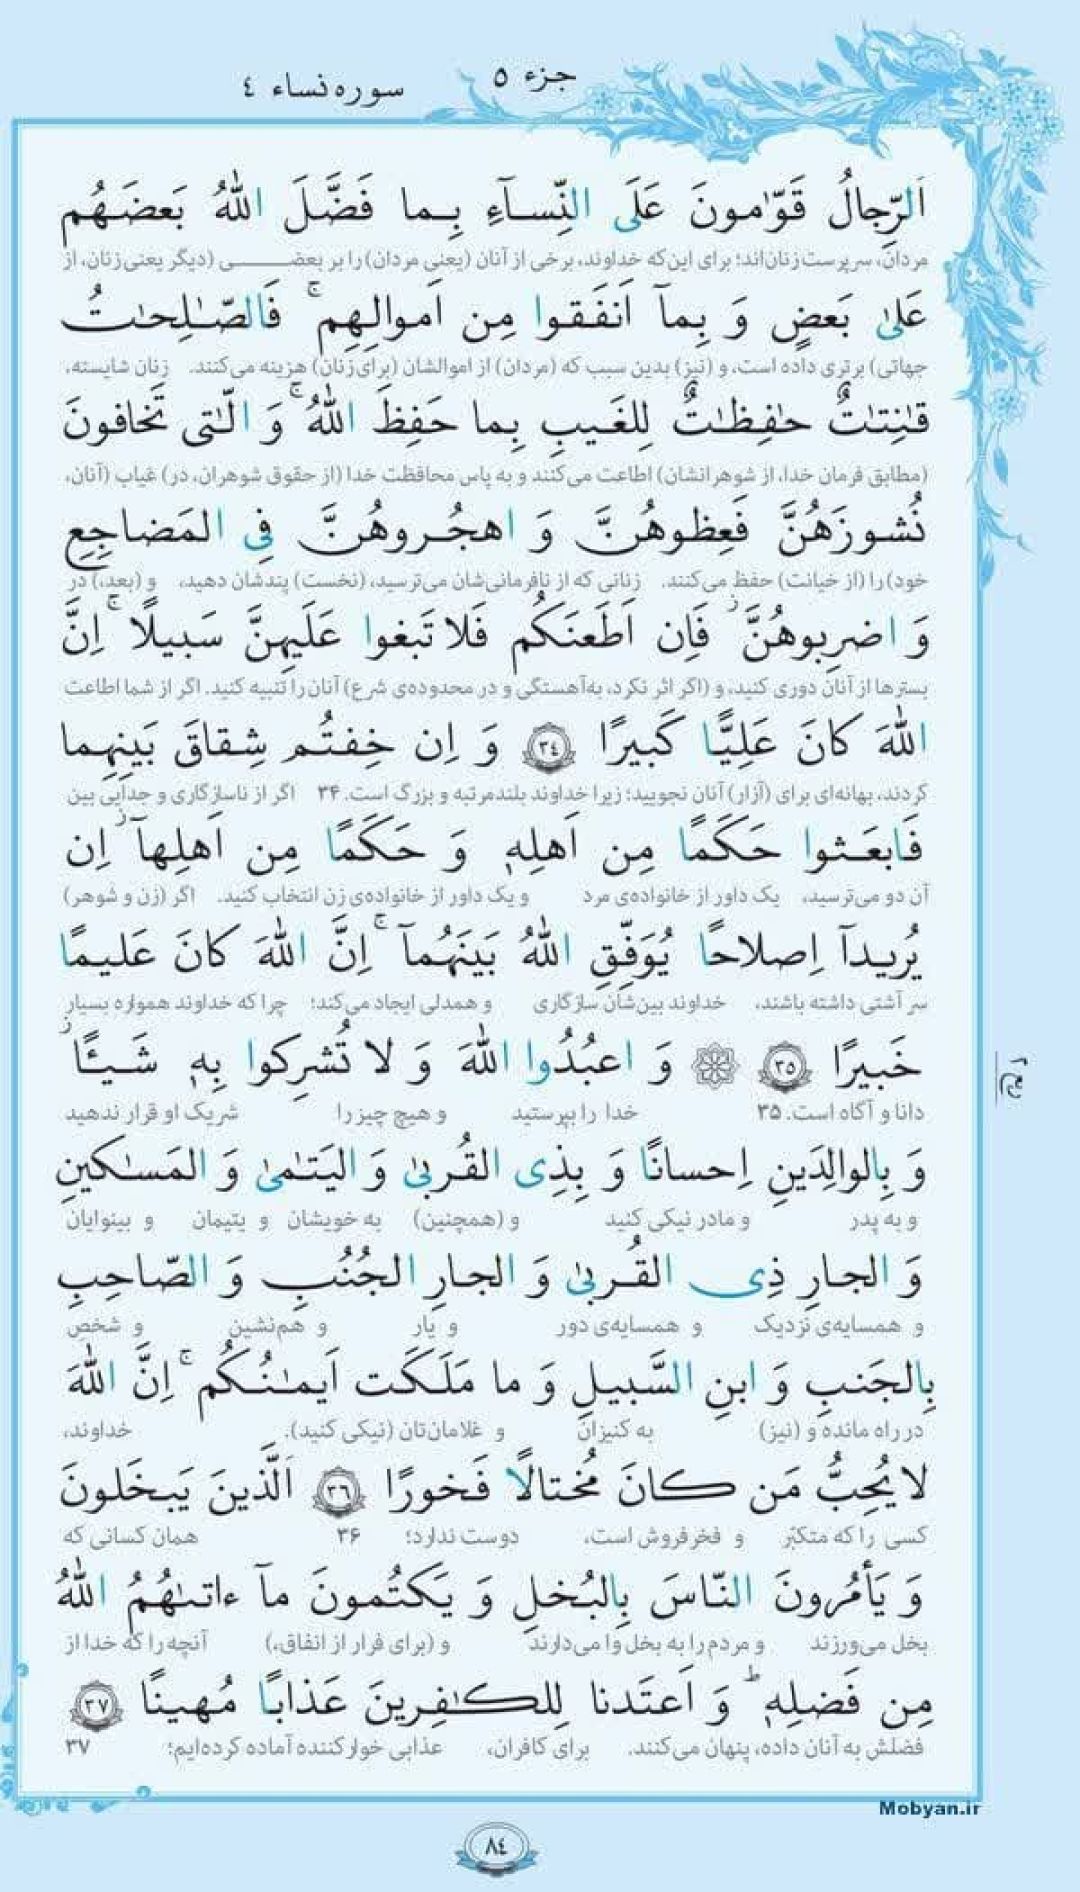 جزء ٥
سوره نساء ٤
اَلرِّجالُ قَوّٰمونَ عَلَى النِّسآءِ بِما فَضَّلَ اللّٰهُ بَعضَهُم
مردان، سرپرست زنان‌اند؛ برای این‌که خداوند، برخی از آنان (یعنی مردان) را بر بعضی (دیگر یعنی زنان، از
عَلىٰ بَعضٍ وَ بِمآ اَنفَقوا مِن اَموالِهِم ۚ فَالصّٰلِحٰتُ
جهاتی) برتری داده است، و (نیز) بدین سبب که (مردان) از اموالشان (برای زنان) هزینه می‌کنند. زنان شایسته،
قٰنِتٰتٌ حٰفِظٰتٌ لِلغَيبِ بِما حَفِظَ اللّٰهُ ۚ وَ الّٰتى تَخافونَ
(مطابق فرمان خدا، از شوهرانشان) اطاعت می‌کنند و به پاس محافظت خدا (از حقوق شوهران، در) غیاب (آنان،
نُشوزَهُنَّ فَعِظوهُنَّ وَ اهجُروهُنَّ فِى المَضاجِعِ
خود) را (از خیانت) حفظ می‌کنند. زنانی که از نافرمانی‌شان می‌ترسید، (نخست) پندشان دهید، و (بعد،) در
وَ اضرِبوهُنَّ ۖ فَاِن اَطَعنَكُم فَلا تَبغوا عَلَيهِنَّ سَبيلًا ۚ اِنَّ
بسترها از آنان دوری کنید، و (اگر اثر نکرد، به‌آهستگی و در محدوده‌ی شرع) آنان را تنبیه کنید. اگر از شما اطاعت
اللّٰهَ كانَ عَلِيًّا كَبيرًا ﴿٣٤﴾ وَ اِن خِفتُم شِقاقَ بَينِهِما
کردند، بهانه‌ای برای (آزار) آنان نجویید؛ زیرا خداوند بلندمرتبه و بزرگ است. ۳۴ اگر از ناسازگاری و جدایی بین
فَابعَثوا حَكَمًا مِن اَهلِهٖ وَ حَكَمًا مِن اَهلِهآ ۖ اِن
آن دو می‌ترسید، یک داور از خانواده‌ی مرد و یک داور از خانواده‌ی زن انتخاب کنید. اگر (زن و شوهر)
يُريدآ اِصلاحًا يُوَفِّقِ اللّٰهُ بَينَهُمآ ۚ اِنَّ اللّٰهَ كانَ عَليمًا
سر آشتی داشته باشند، خداوند بین‌شان سازگاری و همدلی ایجاد می‌کند؛ چرا که خداوند همواره بسیار
خَبيرًا ﴿٣٥﴾ وَ اعبُدُوا اللّٰهَ وَ لا تُشرِكوا بِهٖ شَيـًٔا ۖ
دانا و آگاه است. ۳۵ خدا را بپرستید و هیچ چیز را شریک او قرار ندهید
وَ بِالوالِدَينِ اِحسانًا وَ بِذِى القُربىٰ وَ اليَتٰمىٰ وَ المَسٰكينِ
و به پدر و مادر نیکی کنید و (همچنین) به خویشان و یتیمان و بینوایان
وَ الجارِ ذِى القُربىٰ وَ الجارِ الجُنُبِ وَ الصّاحِبِ
و همسایه‌ی نزدیک و همسایه‌ی دور و یار و هم‌نشین و شخص
بِالجَنبِ وَ ابنِ السَّبيلِ وَ ما مَلَكَت اَيمٰنُكُم ۚ اِنَّ اللّٰهَ
در راه مانده و (نیز) به کنیزان و غلامان‌تان (نیکی کنید). خداوند،
لا يُحِبُّ مَن كانَ مُختالًا فَخورًا ﴿٣٦﴾ اَلَّذينَ يَبخَلونَ
کسی را که متکبّر و فخرفروش است، دوست ندارد؛ ۳۶ همان کسانی که
وَ يَأمُرونَ النّاسَ بِالبُخلِ وَ يَكتُمونَ مآ ءاتىٰهُمُ اللّٰهُ
بخل می‌ورزند و مردم را به بخل وا می‌دارند و (برای فرار از انفاق،) آنچه را که خدا از
مِن فَضلِهٖ ۗ وَ اَعتَدنا لِلكٰفِرينَ عَذابًا مُهينًا ﴿٣٧﴾
فضلش به آنان داده، پنهان می‌کنند. برای کافران، عذابی خوارکننده آماده کرده‌ایم؛ ۳۷
Mobyan.ir
٨٤